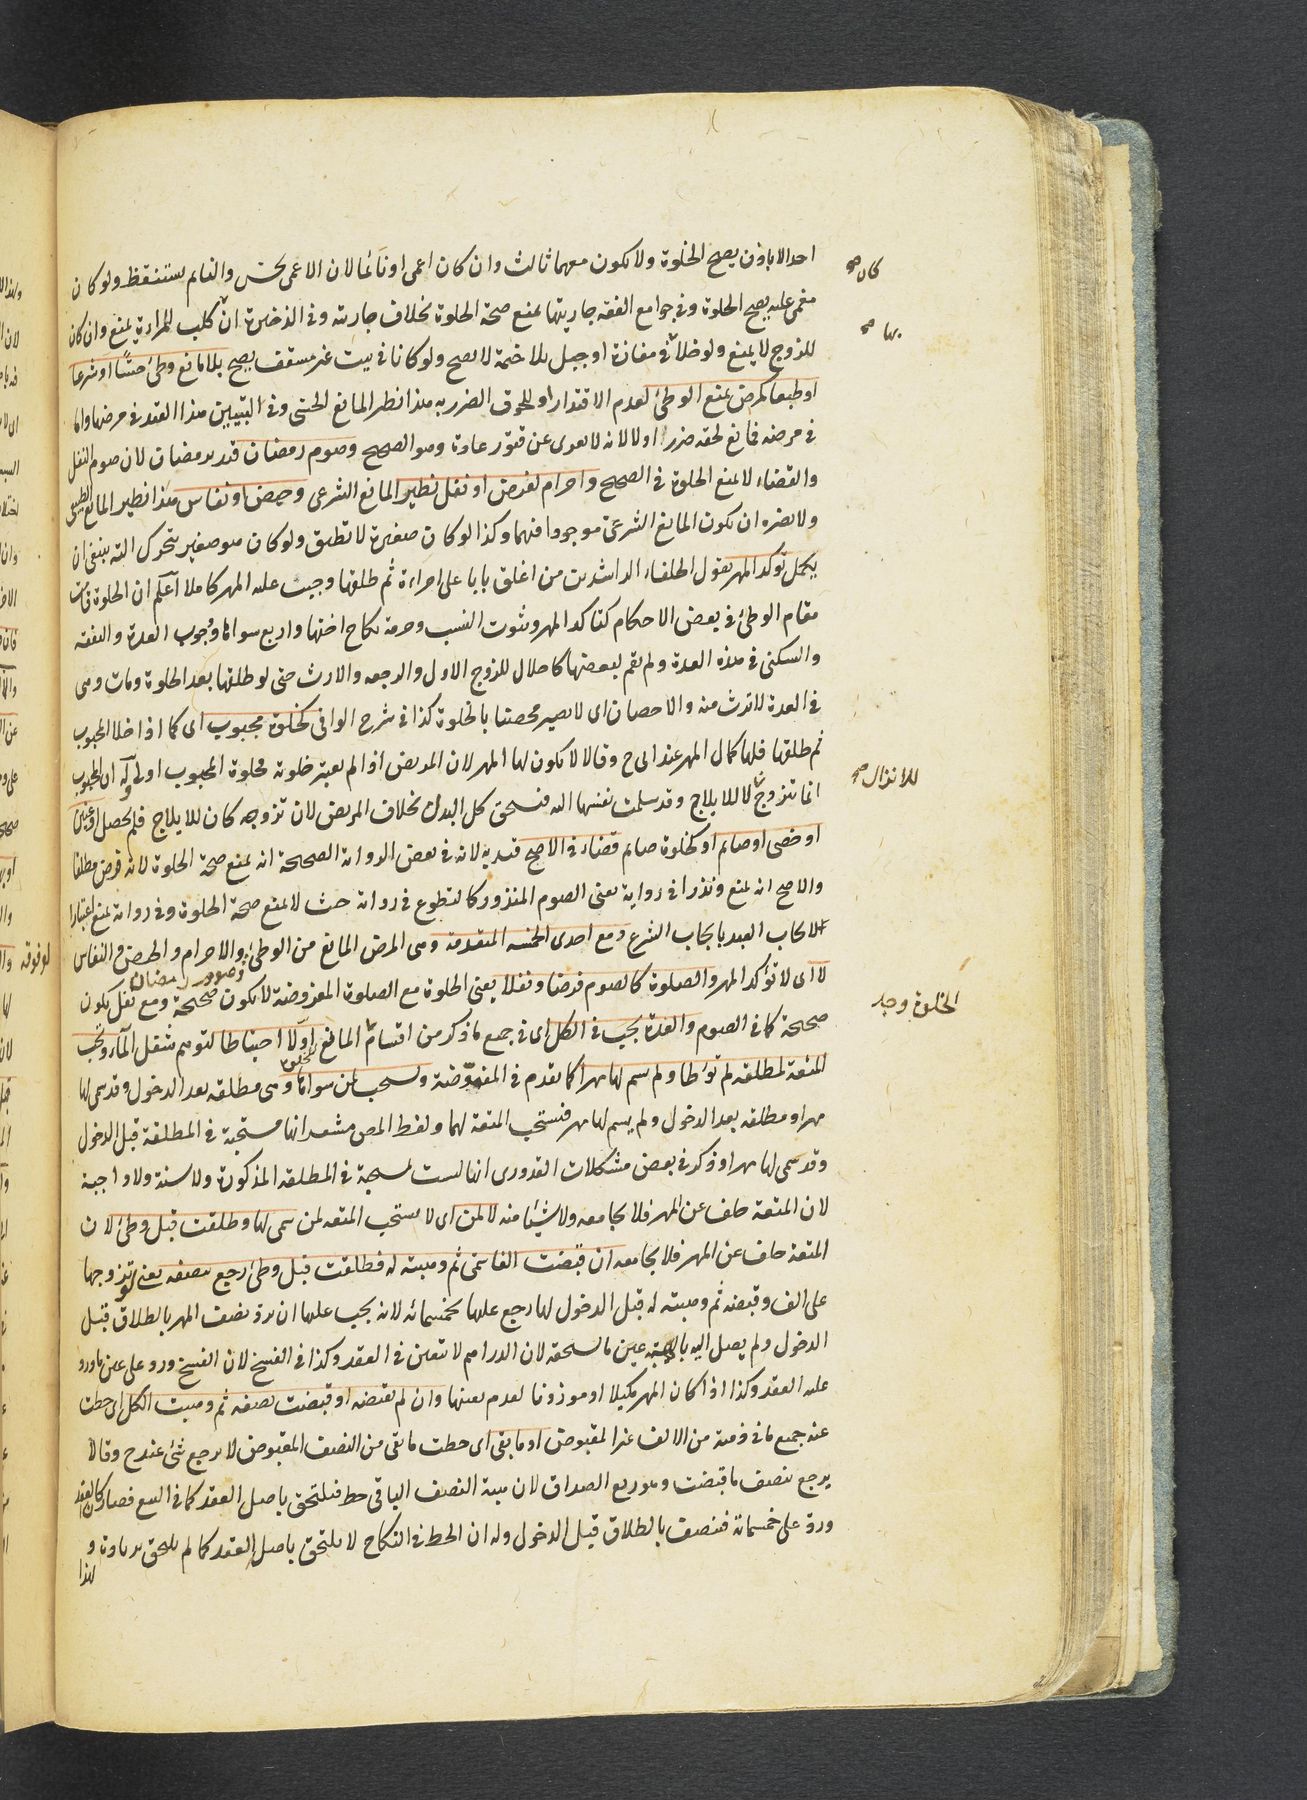 احد الا باذن يصح الخلوة ولا يكون معهما ثالث وان كان اعمى او نائما لان الاعمى يحس والنايم يستيقظ ولو كان
كان صح
مغمى عليه يصح الخلوة وفي جوامع الفقه جاريتها يمنع صحة الخلوة بخلاف جاريته وفي الذخيرة ان كلب المراة يمنع وان كان
للزوج لا يمنع ولو خلا في مفازة او جبل بلا خيمة لا يصح ولو كانا في بيت غير مسقف يصح بلا مانع وطئ حسا او شرعا
بها صح
او طبعا كمرض يمنع الوطئ لعدم الاقتدار او للحوق الضرر به هذا نظير المانع الحسي وفي التبيين هذا القيد في مرضها واما
في مرضه فمانع لحقه ضرر اولا لانه لا يعرى عن فتور عادة وهو الصحيح وصوم رمضان قيد برمضان لان صوم النفل
والقضاء لا يمنع الخلوة في الصحيح واحرام لفرض او نفل نظير المانع الشرعي وحيض او نفاس هذا نظير المانع الطبيعي
ولا يضره ان يكون المانع الشرعي موجودا فيهما وكذا لو كان صغيرة لا تطيق ولو كان هو صغير يتحرك الته ينبغي ان
يكمل تؤكد المهر بقول الخلفاء الراشدين من اغلق بابا على امراءة ثم طلقها وجب عليه المهر كاملا اعلم ان الخلوة قامت
مقام الوطئ في بعض الاحكام كتاكد المهر وثبوت النسب وحرمة نكاح اختها واربع سواها ووجوب العدة والنفقه
والسكنى في هذه العدة ولم يقم لبعضها كاحلال للزوج الاول والرجعه والارث حتى لو طلقها بعد الخلوة ومات وهي
في العدة لا ترث منه والاحصان اى لا يصير محصنا بالخلوة كذا في شرح الوافي كخلوة مجبوب اى كما اذا خلا المجبوب
ثم طلقها فلها كمال المهر عند ابي ح وقالا لا يكون لها المهر لان المريض اذا لم يعتبر خلوته فخلوة المجبوب اولى وله ان المجبوب
انما تزوج لا للايلاج وقد سلمت نفسها اليه فيستحق كل البدل بخلاف المريض لان تزوجه كان للايلاج فلم يحصل او عنين
للانزال صح
او خصى او صايم او كخلوة صايم قضاء في الاصح قيد به لانه في بعض الرواية الصحيحة انه يمنع صحة الخلوة لانه فرض مطلقا
والاصح انه يمنع ونذرا في رواية يعنى الصوم المنذور كالتطوع في رواية حيث لا يمنع صحة الخلوة وفي رواية يمنع اعتبارا
لايجاب العبد بايجاب الشرع ومع احدى الخمسة المتقدمة وهي المرض المانع من الوطئ والاحرام والحيض والنفاس
وصوم رمضان
لا اى لا تؤكد المهر والصلوة كالصوم فرضا ونفلا يعنى الخلوة مع الصلوة المفروضة لا يكون صحيحة ومع نفل يكون
صحيحة كما في الصوم والعدة يجب في الكل اى في جميع ما ذكر من اقسام المانع اولا احتياطا لتوهم شغل الماء ويجب
الخلوة وجد
المتعة لمطلقه لم توطا ولم يسم لها مهرا كما تقدم في المفوضة ويستحب لمن سواها وهي مطلقه بعد الدخول وقد سمى لها
مهرا ومطلقه بعد الدخول ولم يسم لها مهر فيستحب المتعة لهما ولفظ المص مشعر انها مستحبة في المطلقة قبل الدخول
وقد سمى لها مهرا وذكر في بعض مشكلات القدورى انها ليست بمستحبة في المطلقه المذكورة ولا سنة ولا واجبة
لان المتعة خلف عن المهر فلا يجامعه ولا شيئا منه لا لمن اى لا يستحب المتعه لمن سمى لها وطلقت قبل وطئ لان
المتعة خلف عن المهر فلا يجامعه ان قبضت الفا سمى ثم وهبته له فطلقت قبل وطئ رجع بنصفه يعنى لو تزوجها
على الف وقبضه ثم وهبته له قبل الدخول لها رجع عليها بخمسمائه لانه يجب عليها ان ترد نصف المهر بالطلاق قبل
الدخول ولم يصل اليه بالهبة عين ما يستحقه لان الدراهم لا تتعين في العقد وكذا في الفسخ لان الفسخ ورد على عين ما ورد
عليه العقد وكذا اذا كان المهر مكيلا او موزونا لعدم تعينها وان لم تقبضه او قبضت نصفه ثم وهبت الكل اى حطت
عنه جميع ما في ذمته من الالف غير المقبوض او ما بقى اى حطت ما بقى من النصف المقبوض لا يرجع شئ عند ح وقالا
يرجع بنصف ما قبضت وهو ربع الصداق لان هبة النصف الباقى حط فيلتحق باصل العقد كما في البيع فصار كان العقد
ورد على خمسمائة فينصف بالطلاق قبل الدخول وله ان الحط في النكاح لا يلتحق باصل العقد كما لم يلحق بزيادة و
لهذا